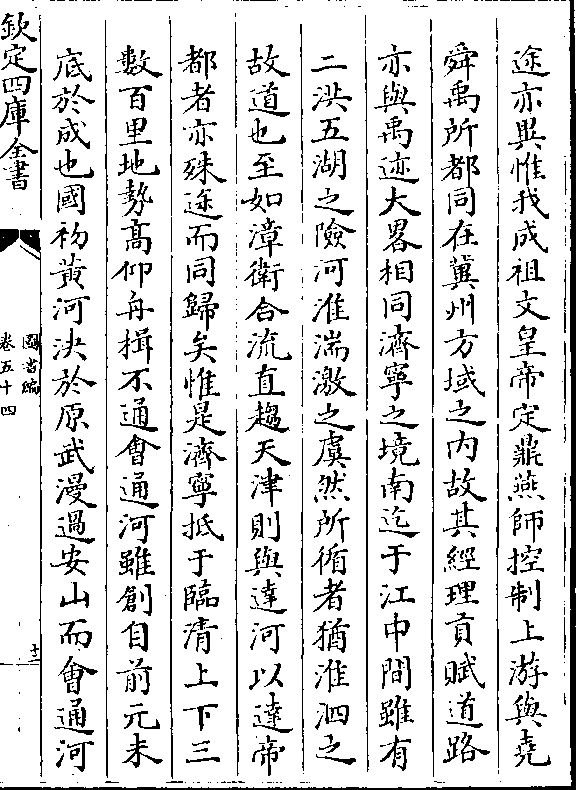 途亦異惟我成祖文皇帝定鼎燕師控制上游與堯
舜禹所都同在冀州方域之内故其經理貢賦道路
亦與禹迹大畧相同濟寧之境南迄于江中間雖有
二洪五湖之險河淮湍激之虞然所循者猶淮泗之
故道也至如漳衛合流直趨天津則與達河以達帝
都者亦殊途而同歸矣惟是濟寧抵于臨清上下三
數百里地勢高仰舟揖不通會通河雖創自前元未
底於成也國初黄河決於原武漫過安山而會通河
欽定四庫全書
圖書編
卷五十四
十二